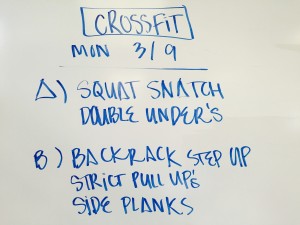 CROSSFIT
MON 3/9
A) SQUAT SNATCH
DOUBLE UNDER'S
B) BACKRACK STEP UP
STRICT PULL UP'S
SIDE PLANKS